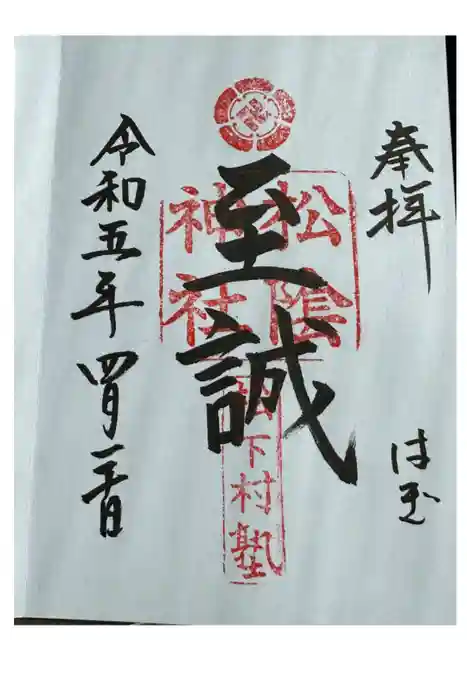 奉拝
至誠
松陰
神社
松下村塾
令和五年四月